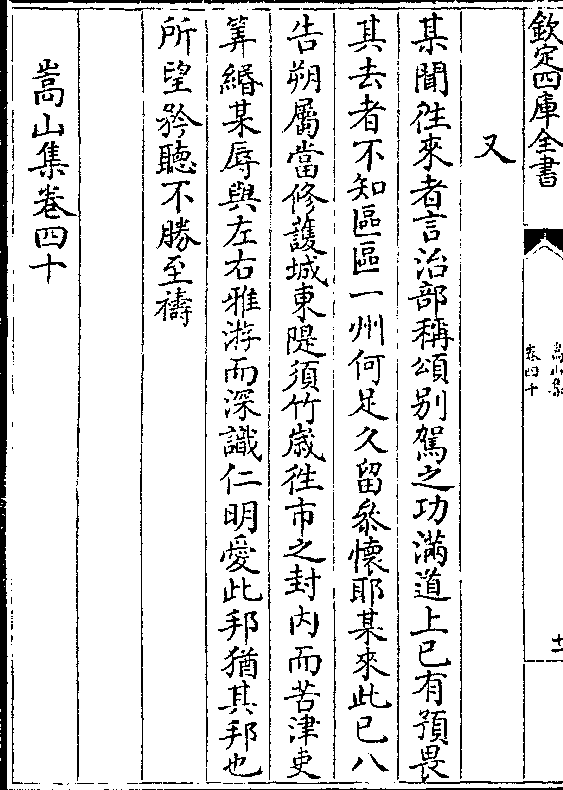 欽定四庫全書
嵩山集
卷四十
十一
又
某聞往來者言治部稱頌別駕之功滿道上已有預畏
其去者不知區區一州何足久留參懷耶某來此已八
告朔屬當修護城東隄須竹嵗徃市之封内而苦津吏
筭緡某辱與左右雅游而深識仁明愛此邦猶其邦也
所望矜聽不勝至禱
嵩山集卷四十